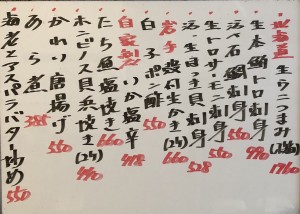 北海道 生ウニつまみ 1760
生本鮪トロ刺身 990
活〆石鯛刺身 550
生トロサーモン刺身 550
活生ほっき貝刺身 528
岩手 殻付生かき(2ケ) 660
白子ポン酢 550
自家製 いか塩辛 418
たち魚塩焼き 660
ホンビノス貝浜焼き(2ケ) 440
かわり唐揚げ 550
あら煮 385
海老とアスパラバター炒め 550